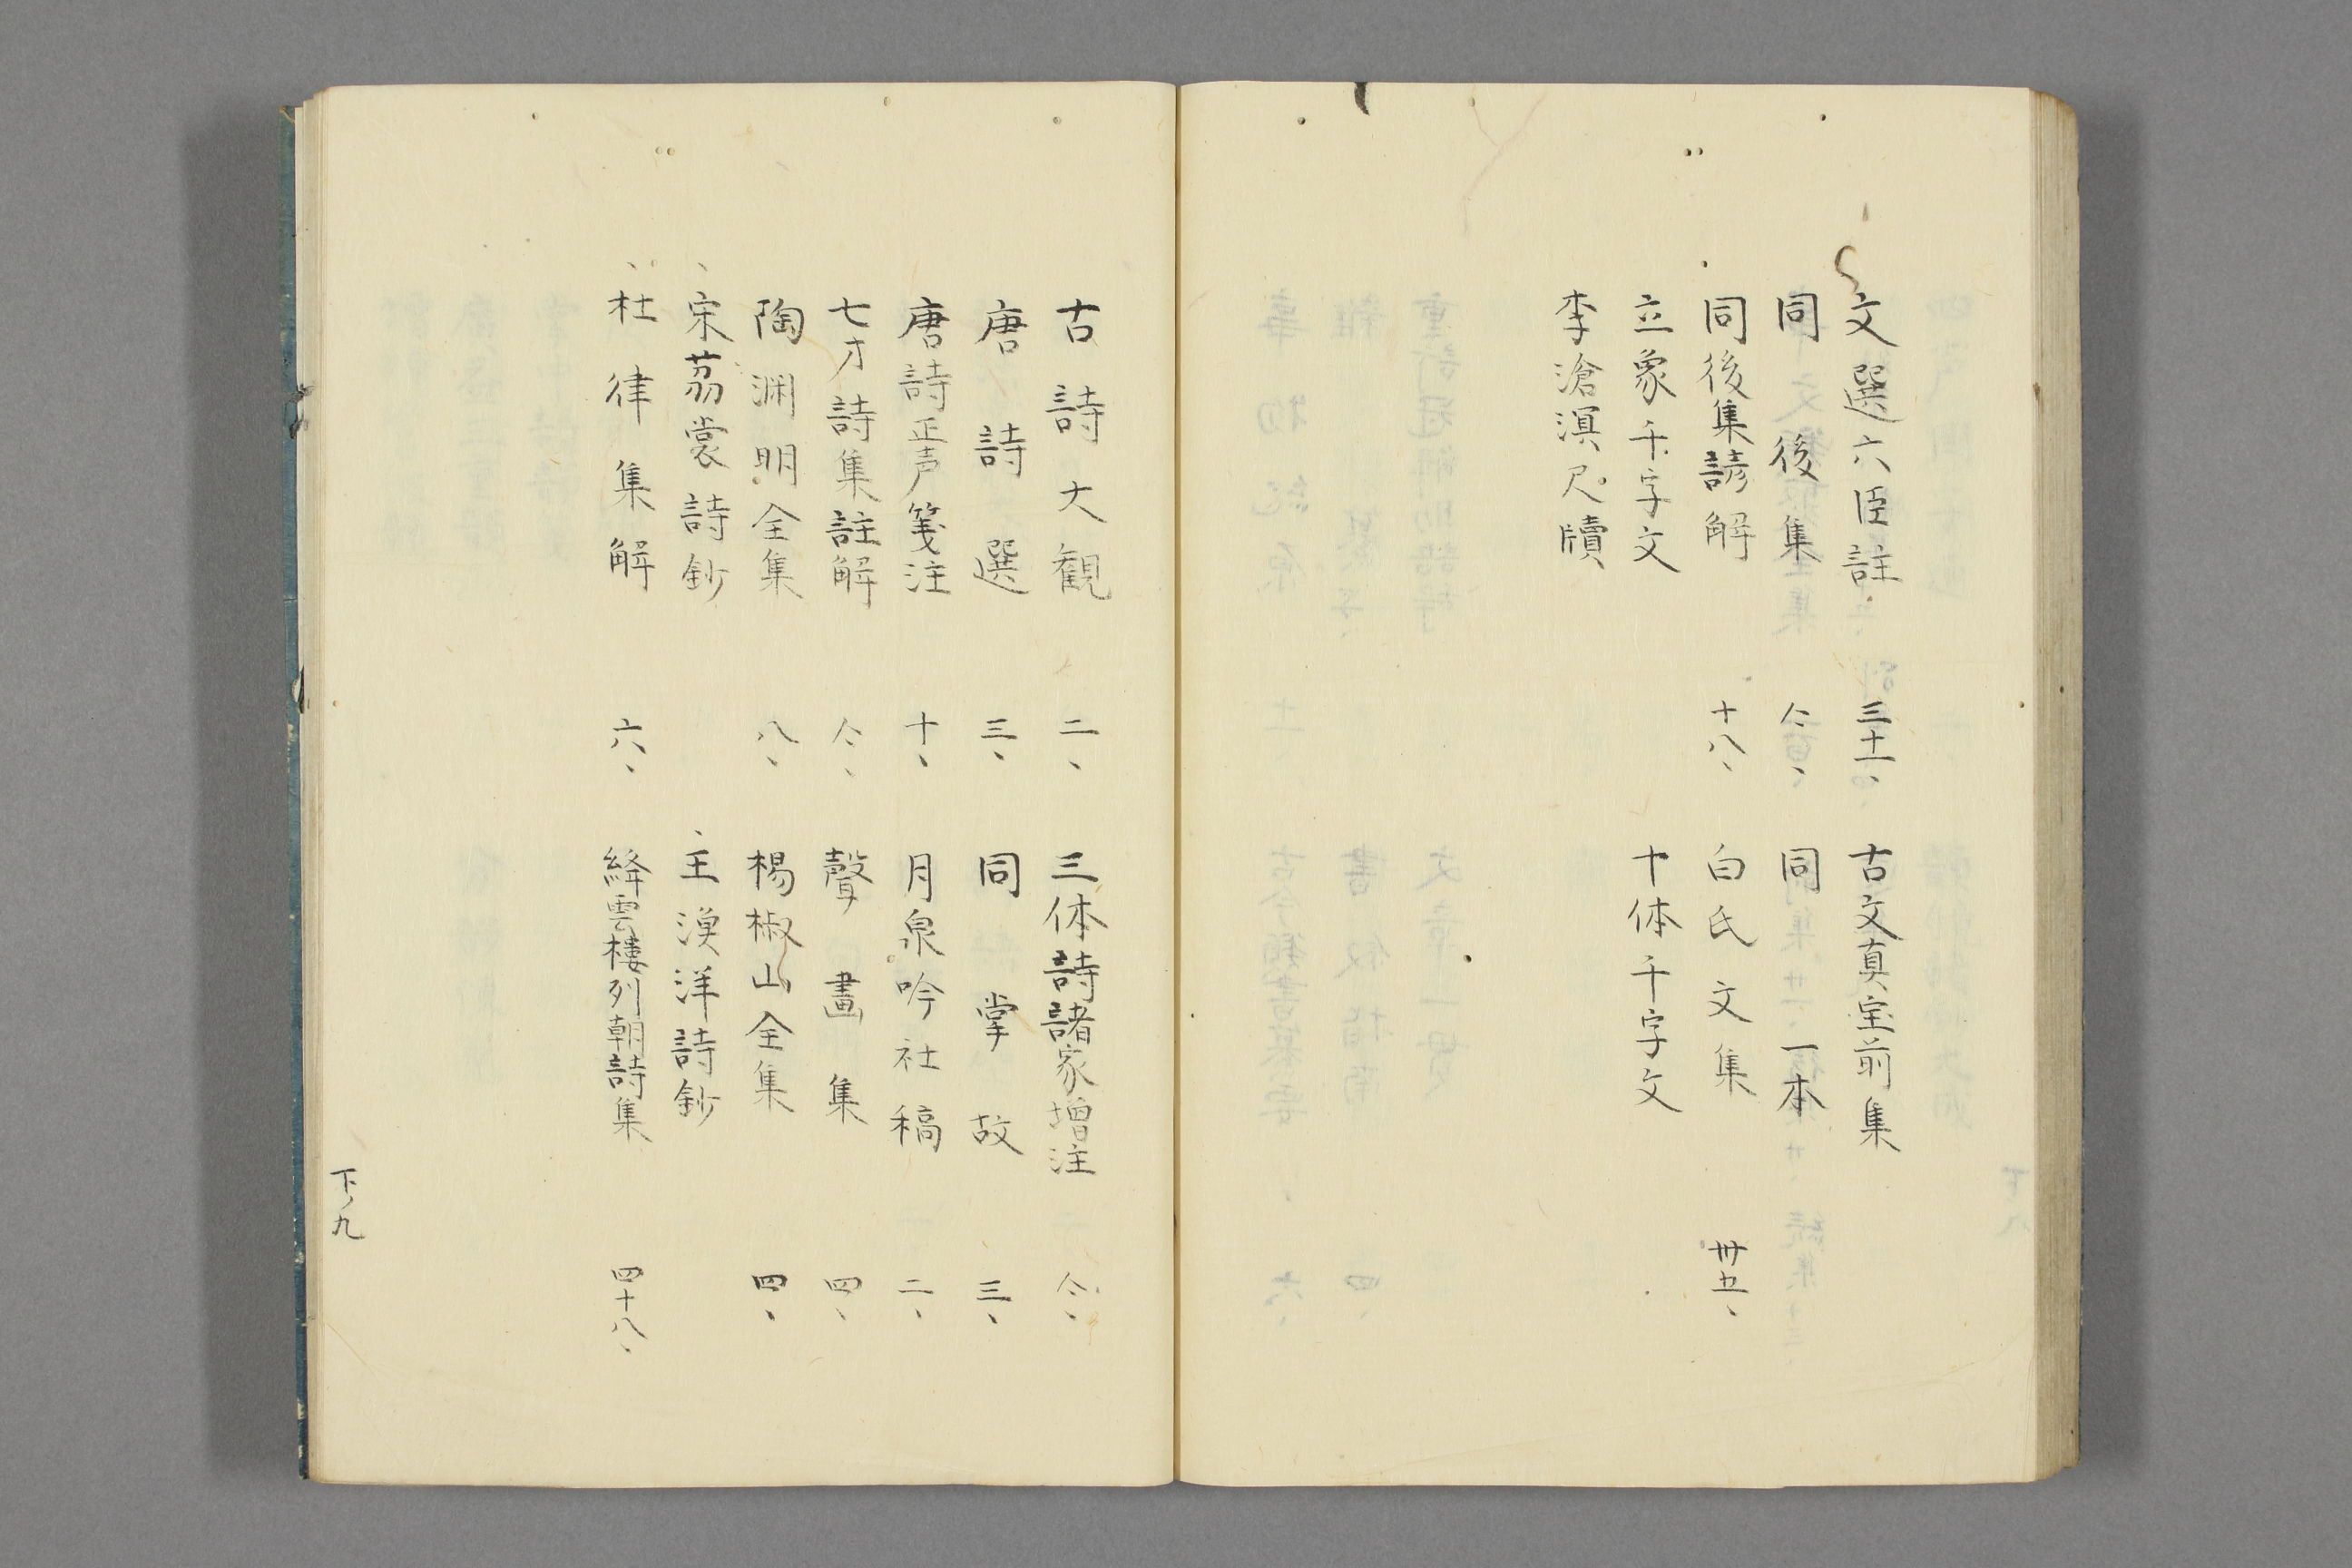 文選六臣註 三十一、 古文真宝前集
同後集 仝、 同一本
同後集諺解 十八、 白氏文集 卅五、
立象千字文 十体千字文
李滄溟尺牘
古詩大観 二、 三体詩諸家増注 仝、
唐詩選 三、 同掌故 三、
唐詩正声箋注 十、 月泉吟社稿 二、
七才詩集註解 仝、 聲畫集 四、
陶渊明全集 八、 楊椒山全集 四、
、宋茘裳詩鈔 、王漁洋詩鈔
、杜律集解 六、 絳雲樓列朝詩集 四十八、
下ノ九